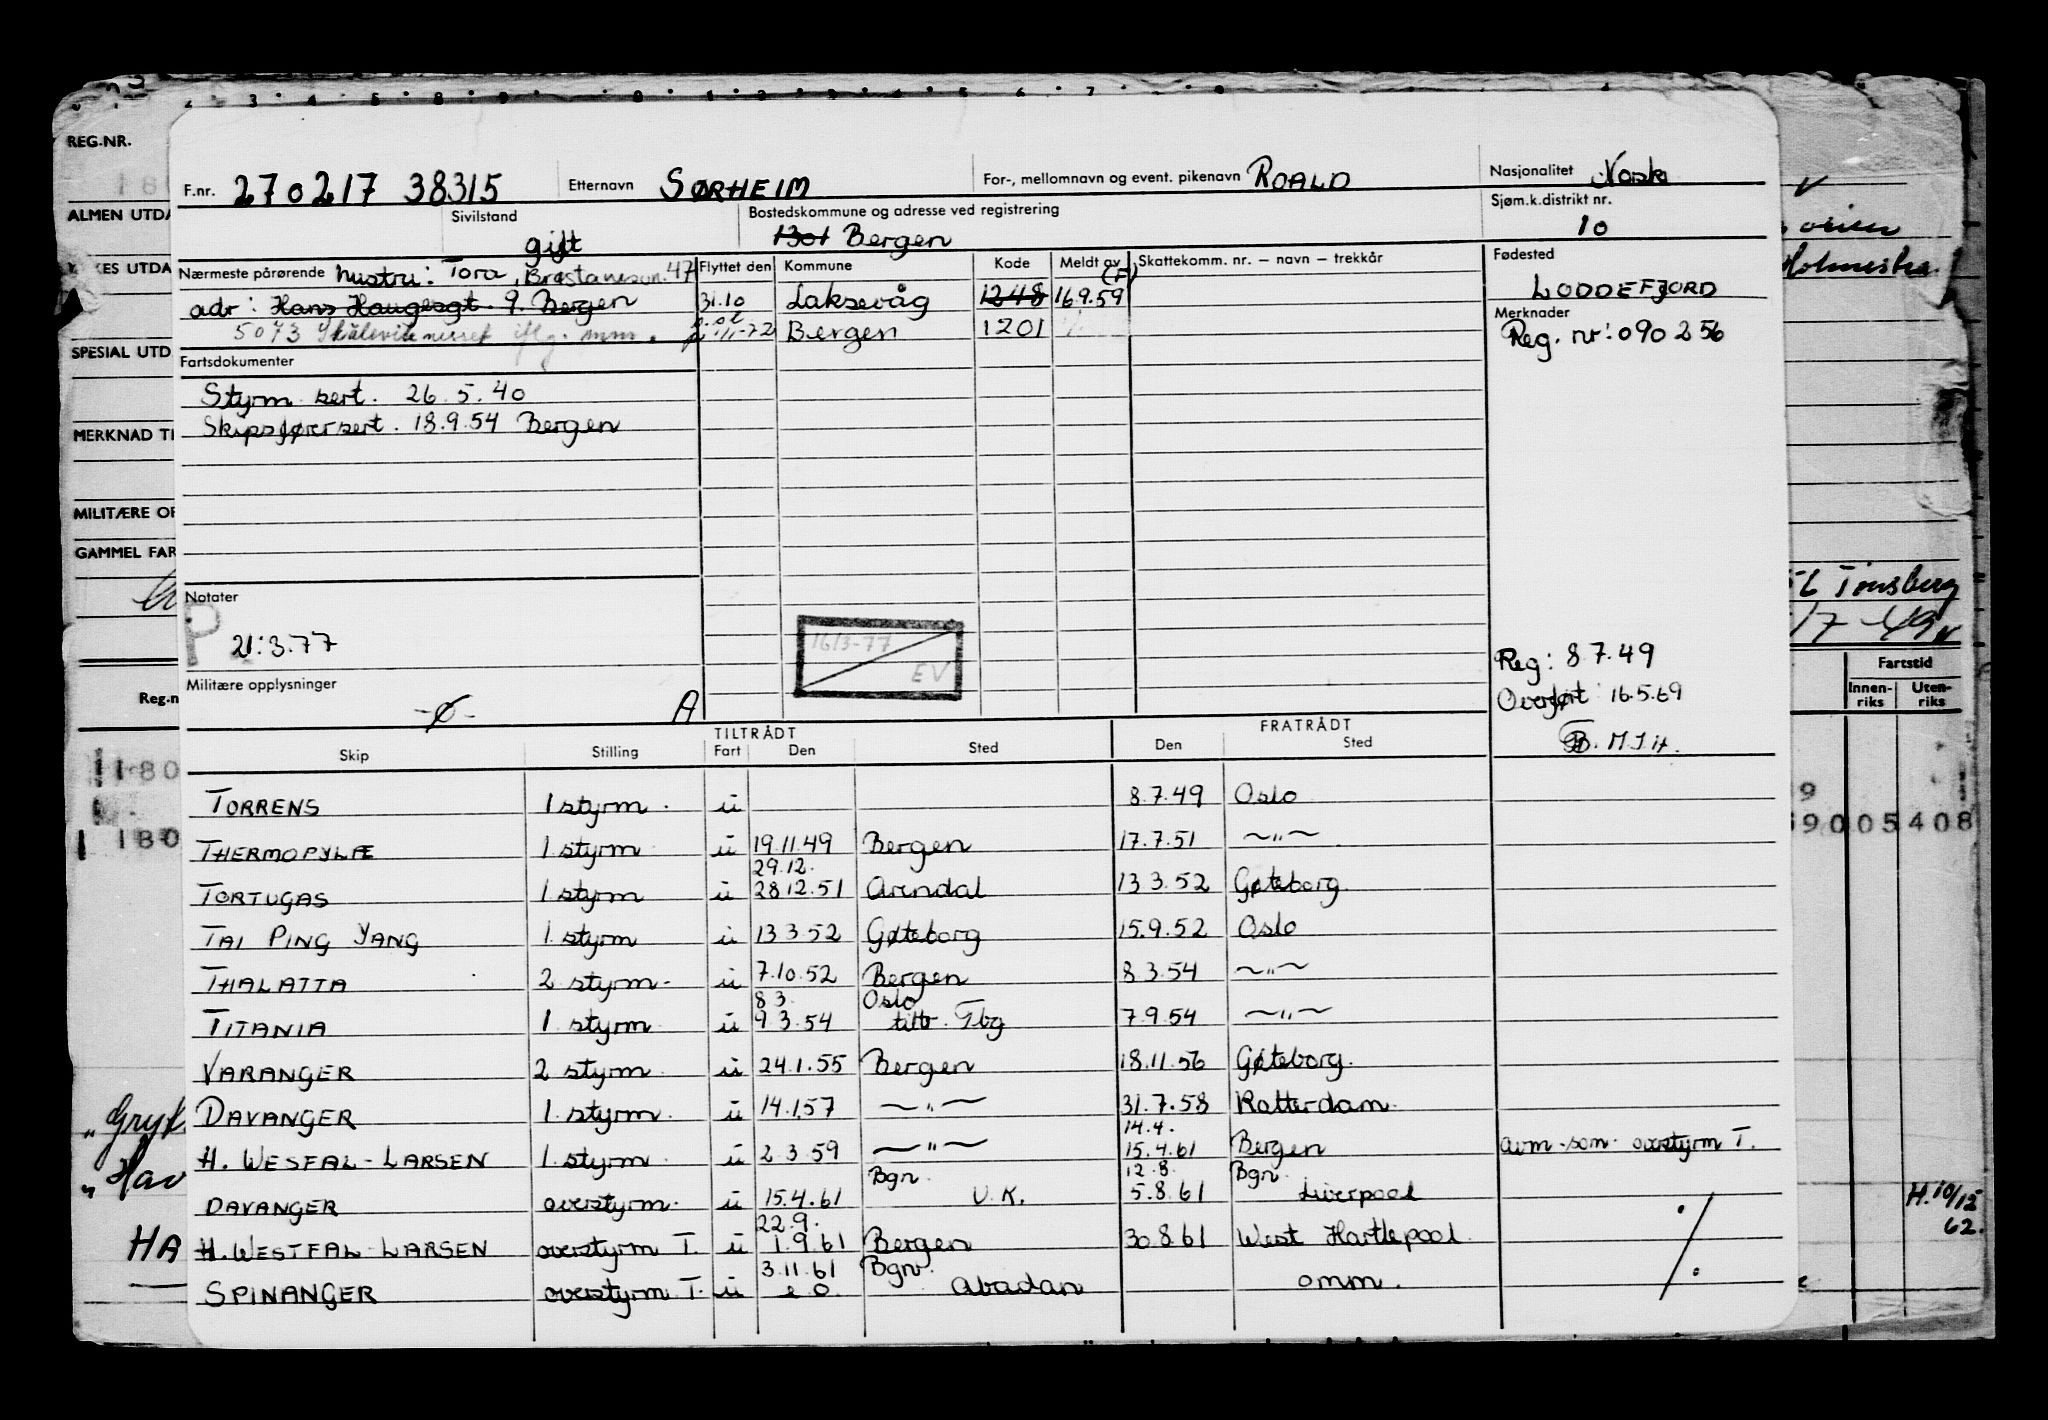 REG.NR.
F.nr. 270217 38315 Etternavn SØRHEIM For-, mellomnavn og event. pikenavn ROALD Nasjonalitet Norsk
ALMEN UTDA Sivilstand gift Bostedskommune og adresse ved registrering 1301 Bergen Sjøm.k.distrikt nr. 10
Nærmeste pårørende hustru: Tora, 47 Flyttet den Kommune Kode Meldt av (F) Skattekomm. nr. – navn – trekkår Fødested
adr: Hans Haugesgt. 9. Bergen 31.10 Laksevåg 1248 16.9.59 LODDEFJORD
5073 iflg. mm. 1.1-72 Bergen 1201 Merknader
Reg. nr: 090256
SPESIAL UTD
Fartsdokumenter
Styrm sert. 26.5.40
Skipsførersert. 18.9.54 Bergen
MERKNAD TI
MILITÆRE OP
GAMMEL FAR
Tønsberg
Notater
P 21.3.77
16/3-77
EV
17-49
Reg: 8.7.49
Overført: 16.5.69
B. M.J.H.
Militære opplysninger
-Ø- A
Reg.n
Fartstid
Innen-riks Uten-riks
TILTRÅDT FRATRÅDT
Skip Stilling Fart Den Sted Den Sted
TORRENS 1 styrm. u 8.7.49 Oslo
THERMOPYLÆ 1 styrm u 19.11.49 Bergen 17.7.51 ~"~
29.12.
TORTUGAS 1 styrm u 28.12.51 Arendal 13.3.52 Gøteborg
TAI PING YANG 1. styrm u 13.3.52 Gøteborg 15.9.52 Oslo
THALATTA 2 styrm. u 7.10.52 Bergen 8.3.54 ~"~
8.3. Oslo
TITANIA 1 styrm u 9.3.54 tiltr. Tbg 7.9.54 ~"~
VARANGER 2 styrm u 24.1.55 Bergen 18.11.56 Gøteborg.
DAVANGER 1. styrm. u 14.1.57 ~"~ 31.7.58 Rotterdam
14.4.
H. WESFAL-LARSEN 1. styrm u 2.3.59 ~"~ 15.4.61 Bergen avm. som overstyrm T.
Bgn. 12.8. Bgn.
DAVANGER overstyrm. u 15.4.61 U.K. 5.8.61 Liverpool
22.9.
H. WESTFAL-LARSEN overstyrm T. u 1.9.61 Bergen 30.8.61 West Hartlepool
3.11.61 Bgn.
SPINANGER overstyrm T. u e.o. Abadan omm.
180
1180
9
90005408
„ Gryf
„ Hav
HA
H. 10/12
62.